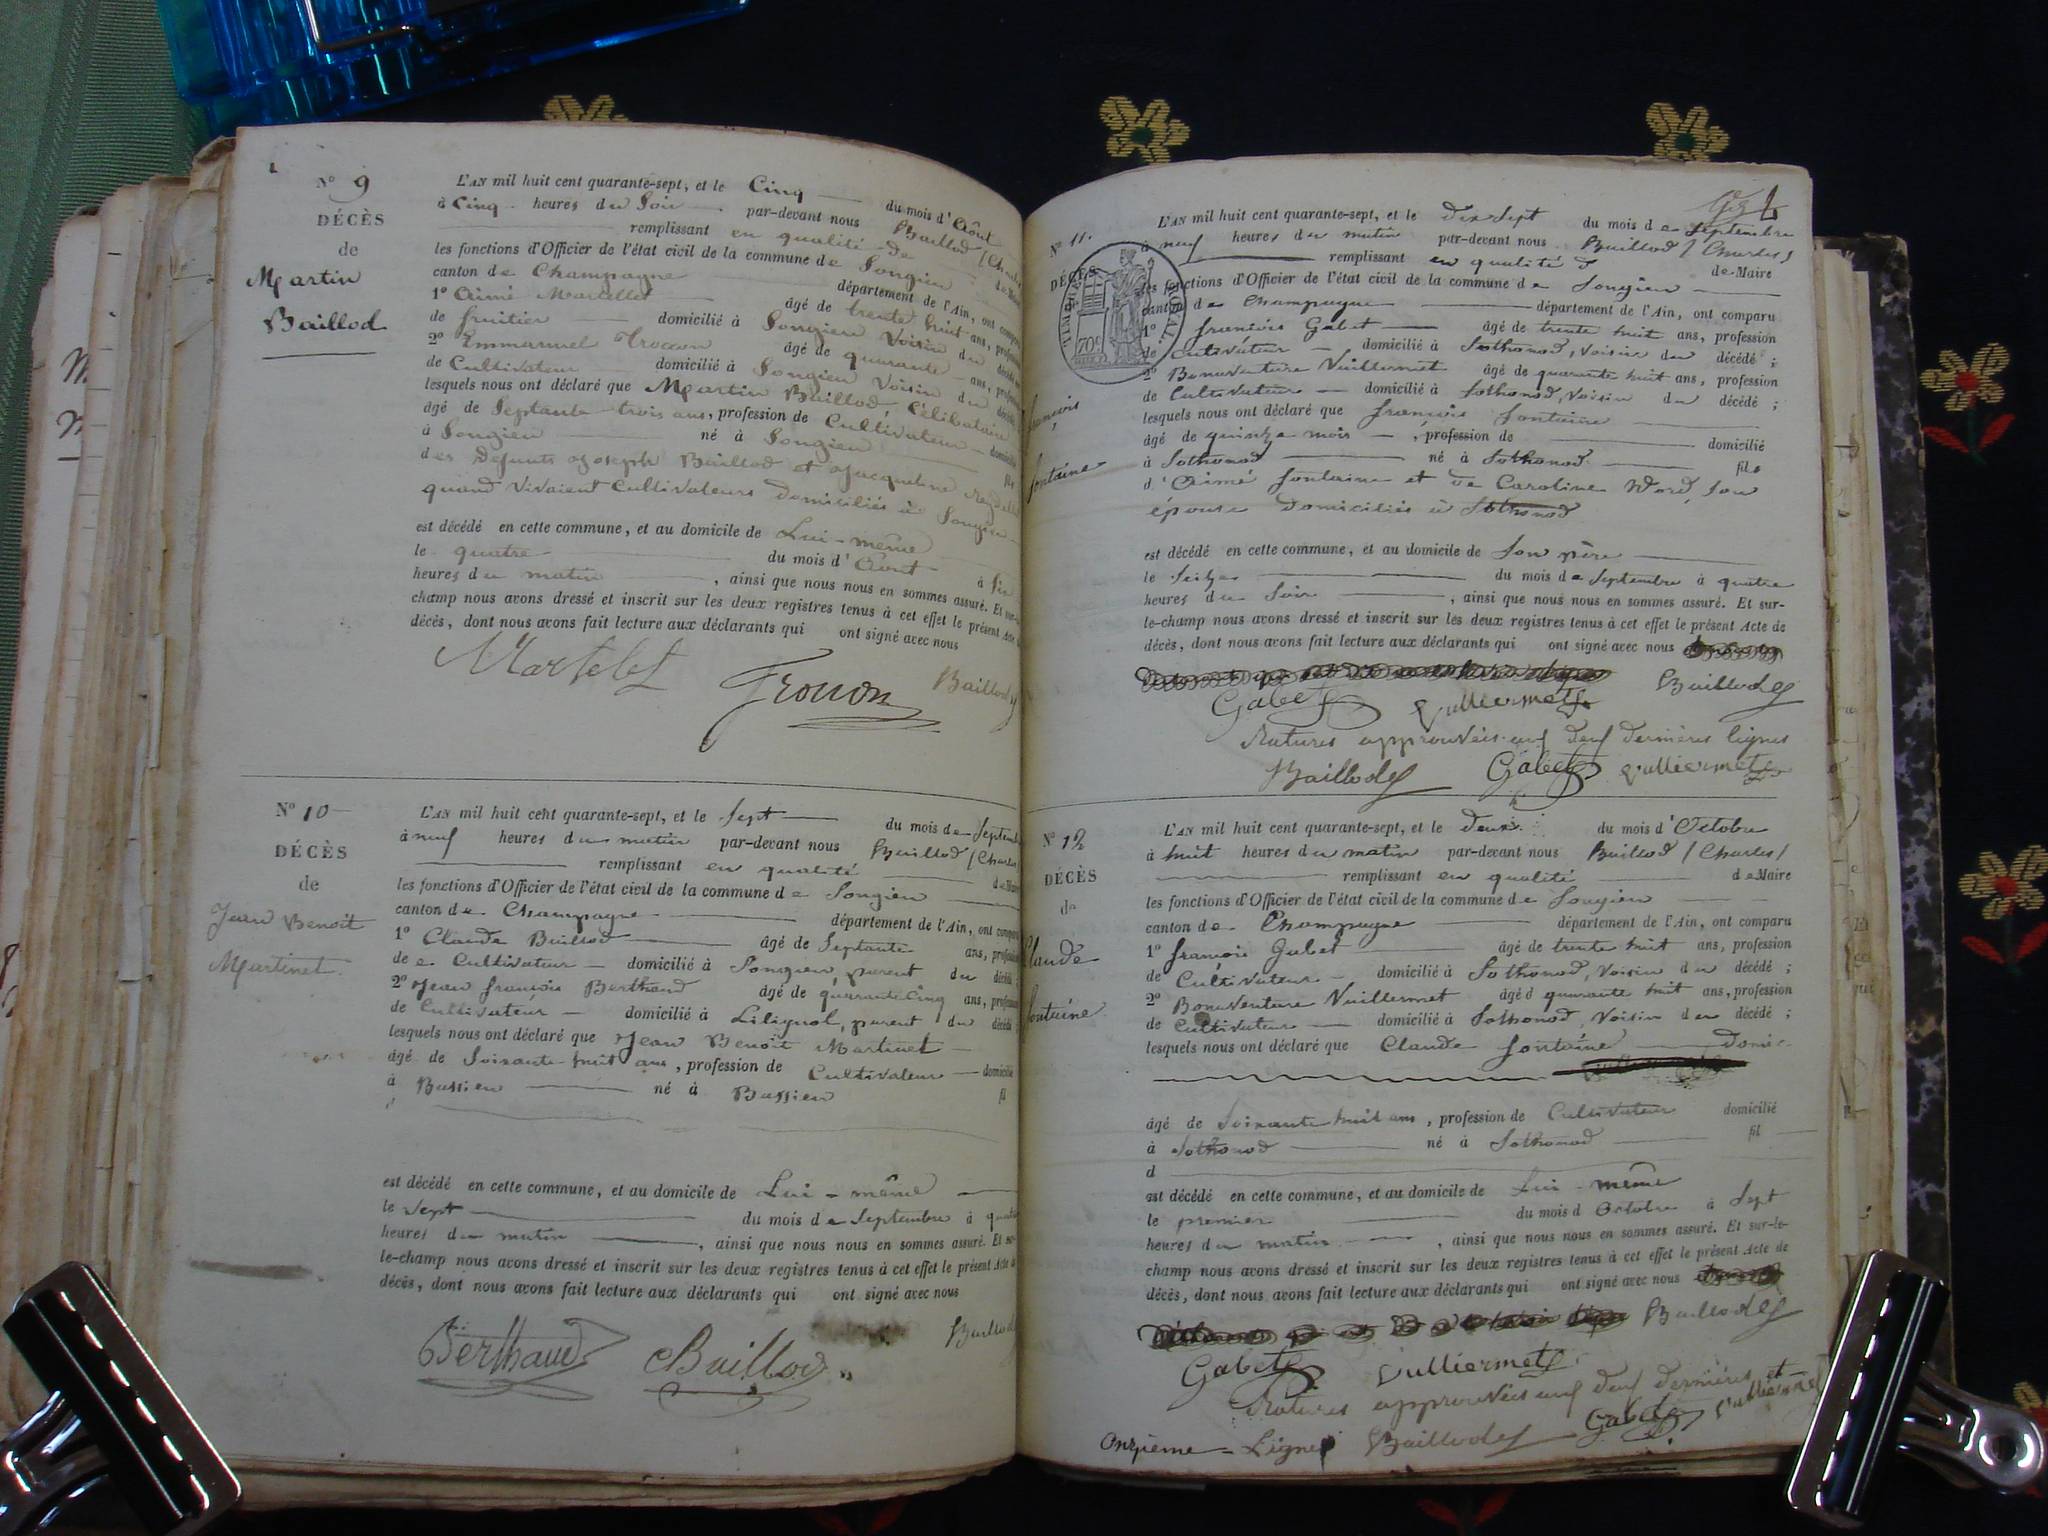 N° 9
DÉCÈS
de
Martin
Baillod
L'AN mil huit cent quarante-sept, et le Cinq du mois d'Août
à Cinq heures du Soir par-devant nous Baillod (Charles
remplissant en qualité de de Maire
les fonctions d'Officier de l'état civil de la commune de Songieu
canton de Champagne département de l'Ain, ont comparu
1° Aimé Martellet âgé de trente huit ans, profession
de fruitier domicilié à Songieu Voisin du décédé
2° Emmanuel Troccon âgé de quarante ans, profession
de Cultivateur domicilié à Songieu Voisin du décédé
lesquels nous ont déclaré que Martin Baillod, Célibataire
âgé de Septante trois ans, profession de Cultivateur domicilié
à Songieu né à Songieu fils
des Défunts Joseph Baillod et Jacqueline
quand vivaient Cultivateurs domiciliés à Songieu
est décédé en cette commune, et au domicile de Lui-même
le quatre du mois d'Août à Six
heures du matin, ainsi que nous nous en sommes assuré. Et sur-le-
champ nous avons dressé et inscrit sur les deux registres tenus à cet effet le présent Acte
décès, dont nous avons fait lecture aux déclarants qui ont signé avec nous
Martelet Trocon Baillod
N° 10
DÉCÈS
de
Jean Benoit
Martinet
L'AN mil huit cent quarante-sept, et le Sept du mois de Septembre
à neuf heures du matin par-devant nous Baillod (Charles)
remplissant en qualité de Maire
les fonctions d'Officier de l'état civil de la commune de Songieu
canton de Champagne département de l'Ain, ont comparu
1° Claude Baillod âgé de Septante ans, profession
de Cultivateur domicilié à Songieu, parent du décédé
2° Jean françois Berthaud âgé de quarante Cinq ans, profession
de Cultivateur domicilié à Lilignol, parent du décédé
lesquels nous ont déclaré que Jean Benoit Martinet
âgé de Soixante huit ans, profession de Cultivateur domicilié
à Bassieu né à Bassieu fil
est décédé en cette commune, et au domicile de Lui-même
le Sept du mois de Septembre à quatre
heures du matin, ainsi que nous nous en sommes assuré. Et sur-
le-champ nous avons dressé et inscrit sur les deux registres tenus à cet effet le présent Acte de
décès, dont nous avons fait lecture aux déclarants qui ont signé avec nous
Berthaud Baillod Baillod
N° 11.
DÉCÈS
TIMBRE ROYAL
70c
françois
fontaine
L'AN mil huit cent quarante-sept, et le dix Sept du mois de Septembre
à neuf heures du matin par-devant nous Baillod (Charles)
remplissant en qualité d de Maire
les fonctions d'Officier de l'état civil de la commune de Songieu
canton de Champagne département de l'Ain, ont comparu
1° françois Gabet âgé de trente huit ans, profession
de Cultivateur domicilié à Sothonod, Voisin du décédé ;
2° Bonaventure Vuillermet âgé de quarante huit ans, profession
de Cultivateur domicilié à Sothonod, Voisin du décédé ;
lesquels nous ont déclaré que françois fontaine
âgé de quinze mois, profession de domicilié
à Sothonod né à Sothonod fils
d'Aimé fontaine et de Caroline Word, Son
épouse domiciliés à Sothonod
est décédé en cette commune, et au domicile de Son père
le Seize du mois de Septembre à quatre
heures du Soir, ainsi que nous nous en sommes assuré. Et sur-
le-champ nous avons dressé et inscrit sur les deux registres tenus à cet effet le présent Acte de
décès, dont nous avons fait lecture aux déclarants qui ont signé avec nous
Baillod
Gabet Vulliermet
Ratures approuvées aux deux dernières lignes
Baillod Gabet Vulliermet
N° 12
DÉCÈS
de
Claude
fontaine
L'AN mil huit cent quarante-sept, et le deux du mois d'Octobre
à huit heures du matin par-devant nous Baillod (Charles)
remplissant en qualité de Maire
les fonctions d'Officier de l'état civil de la commune de Songieu
canton de Champagne département de l'Ain, ont comparu
1° françois Gabet âgé de trente huit ans, profession
de Cultivateur domicilié à Sothonod, Voisin du décédé ;
2° Bonaventure Vuillermet âgé d quarante huit ans, profession
de Cultivateur domicilié à Sothonod, Voisin du décédé ;
lesquels nous ont déclaré que Claude fontaine
âgé de Soixante huit ans, profession de Cultivateur domicilié
à Sothonod né à Sothonod fil
d
est décédé en cette commune, et au domicile de Lui-même
le premier du mois d Octobre à Sept
heures du matin, ainsi que nous nous en sommes assuré. Et sur-le-
champ nous avons dressé et inscrit sur les deux registres tenus à cet effet le présent Acte de
décès, dont nous avons fait lecture aux déclarants qui ont signé avec nous
Baillod
Gabet Vulliermet
Ratures approuvées aux deux dernières et
Onzième Lignes Baillod Gabet Vulliermet